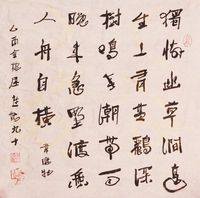 獨憐幽草澗邊
生上有黃鸝深
樹鳴春潮帶雨
晚來急野渡無
人舟自橫 韋應物
乙酉 九十